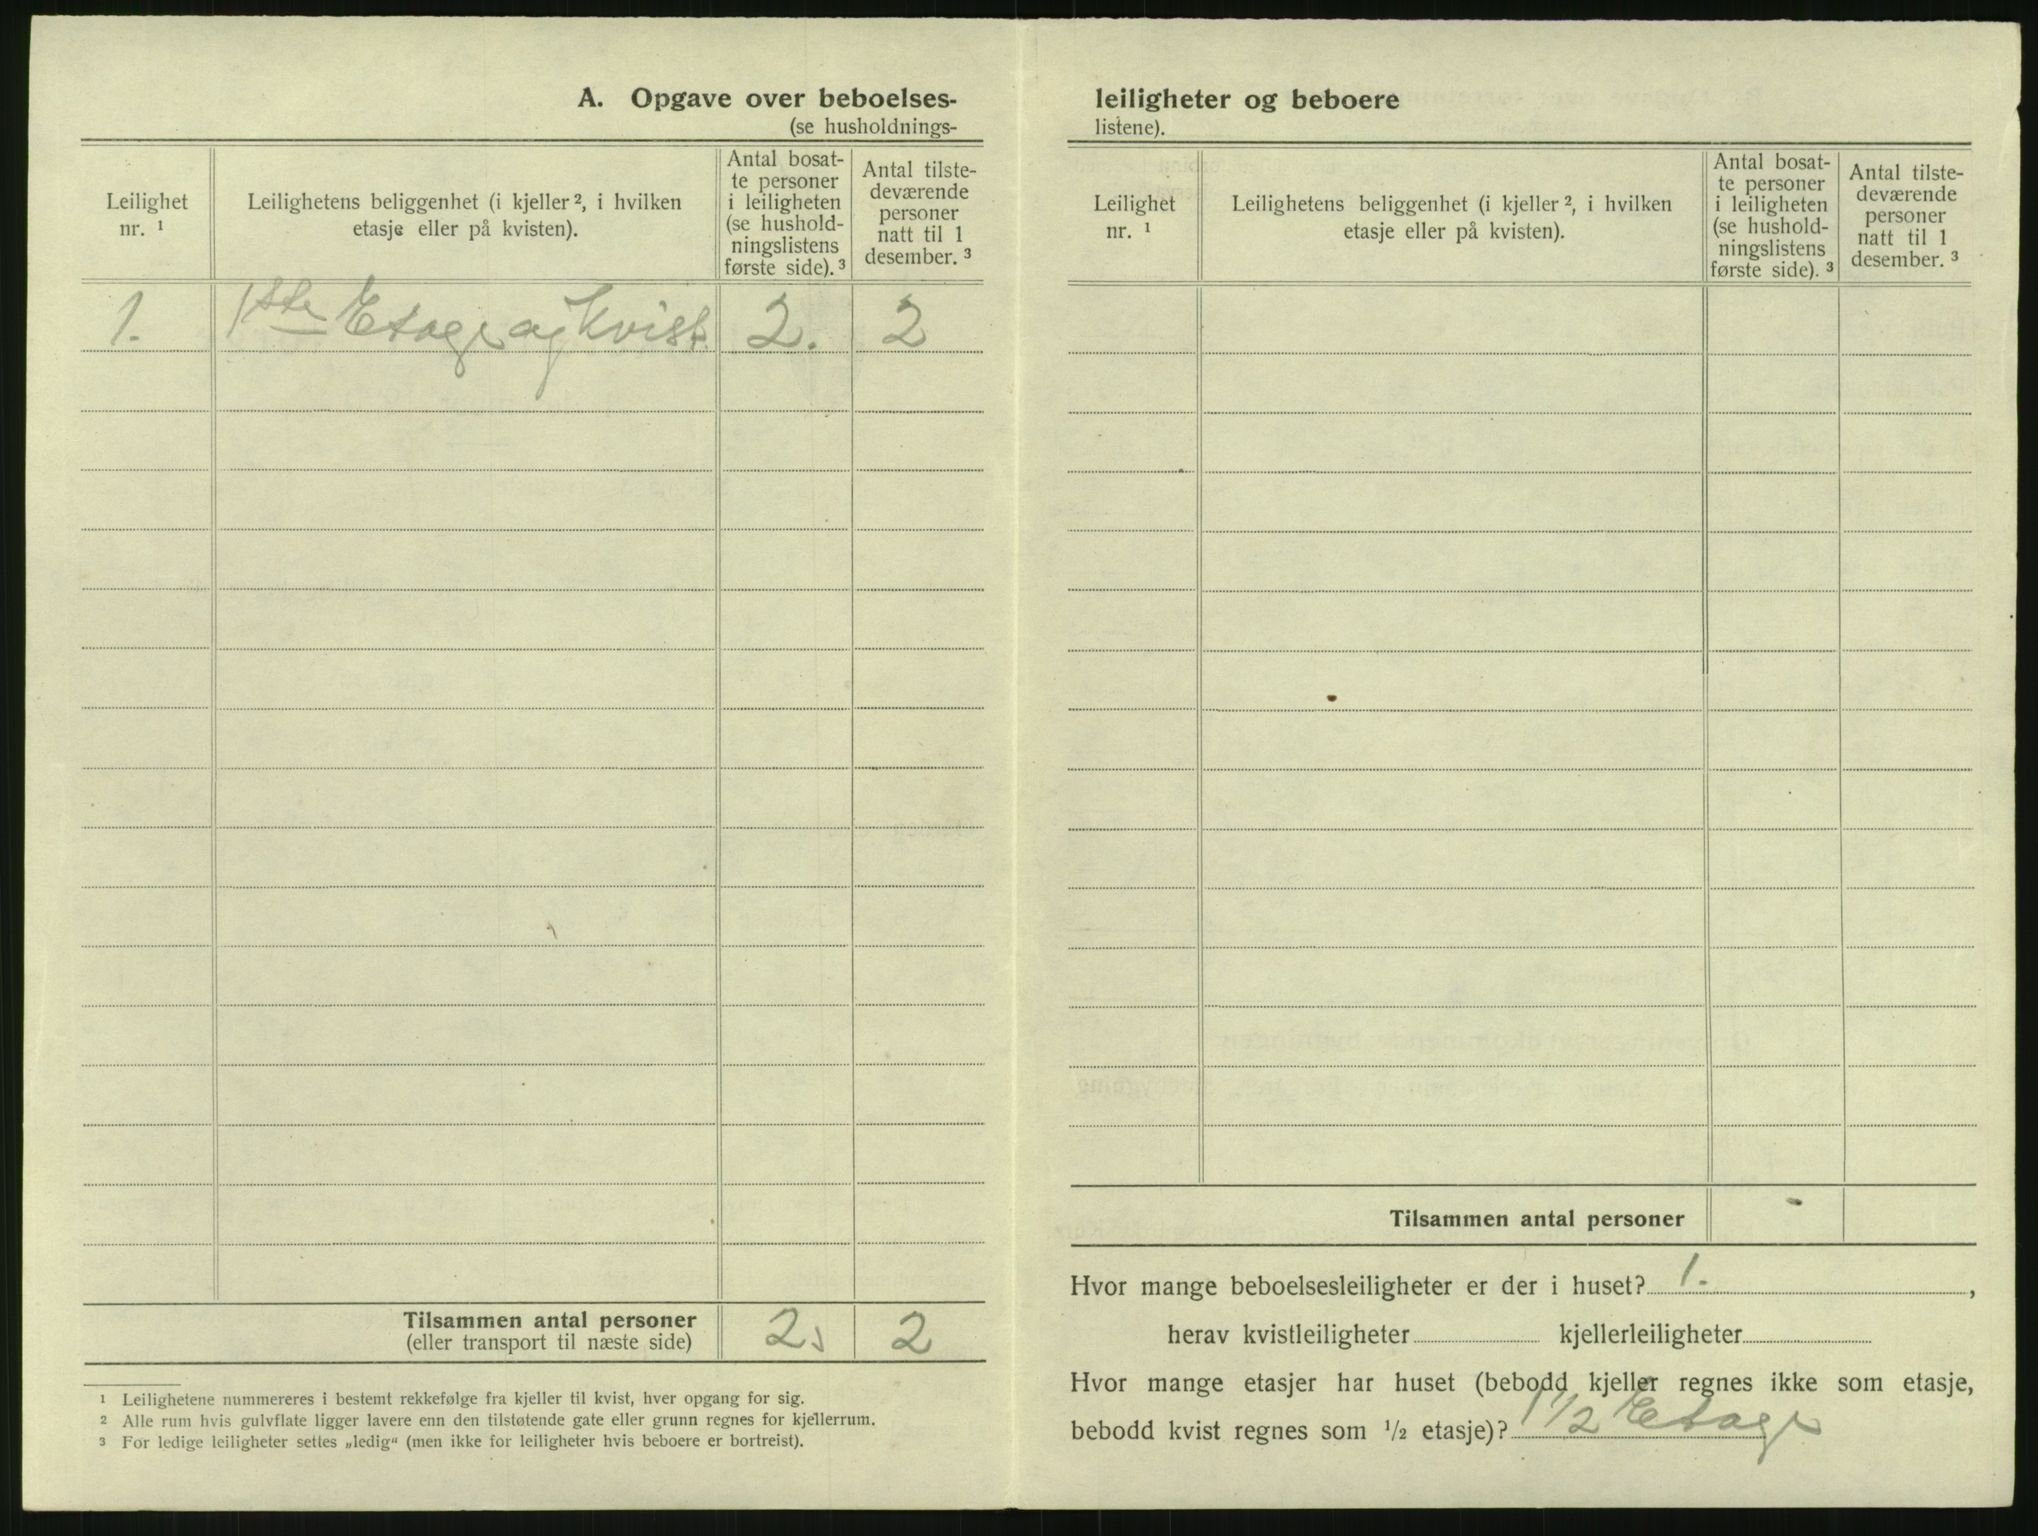 A. Opgave over beboelses-
(se husholdnings-
Leilighet
nr. ¹
Leilighetens beliggenhet (i kjeller ², i hvilken
etasje eller på kvisten).
Antal bosat-
te personer
i leiligheten
(se hushold-
ningslistens
første side). ³
Antal tilste-
deværende
personer
natt til 1
desember. ³
1. 1ste Etage og Kvist. 2. 2
Tilsammen antal personer
(eller transport til næste side)
2. 2
¹ Leilighetene nummereres i bestemt rekkefølge fra kjeller til kvist, hver opgang for sig.
² Alle rum hvis gulvflate ligger lavere enn den tilstøtende gate eller grunn regnes for kjellerrum.
³ For ledige leiligheter settes „ledig“ (men ikke for leiligheter hvis beboere er bortreist).
leiligheter og beboere
listene).
Leilighet
nr. ¹
Leilighetens beliggenhet (i kjeller ², i hvilken
etasje eller på kvisten).
Antal bosat-
te personer
i leiligheten
(se hushold-
ningslistens
første side). ³
Antal tilste-
deværende
personer
natt til 1
desember. ³
Tilsammen antal personer
Hvor mange beboelsesleiligheter er der i huset? 1. ,
herav kvistleiligheter kjellerleiligheter
Hvor mange etasjer har huset (bebodd kjeller regnes ikke som etasje,
bebodd kvist regnes som ½ etasje)? 1 ½ Etage